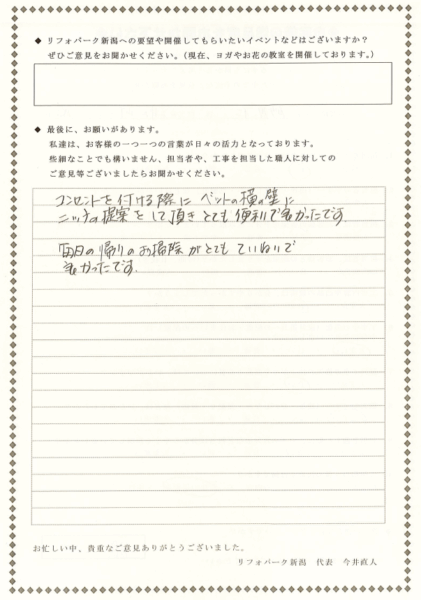 ◆ リフォパーク新潟への要望や開催してもらいたいイベントなどはございますか？
ぜひご意見をお聞かせください。（現在、ヨガやお花の教室を開催しております。）
◆ 最後に、お願いがあります。
私達は、お客様の一つ一つの言葉が日々の活力となっております。
些細なことでも構いません、担当者や、工事を担当した職人に対しての
ご意見等ございましたらお聞かせください。
コンセントを付ける際に ベットの横の壁に
ニッチの提案をして頂き とても便利で良かったです
毎日の帰りのお掃除がとても ていねいで
良かったです.
お忙しい中、貴重なご意見ありがとうございました。
リフォパーク新潟 代表 今井直人